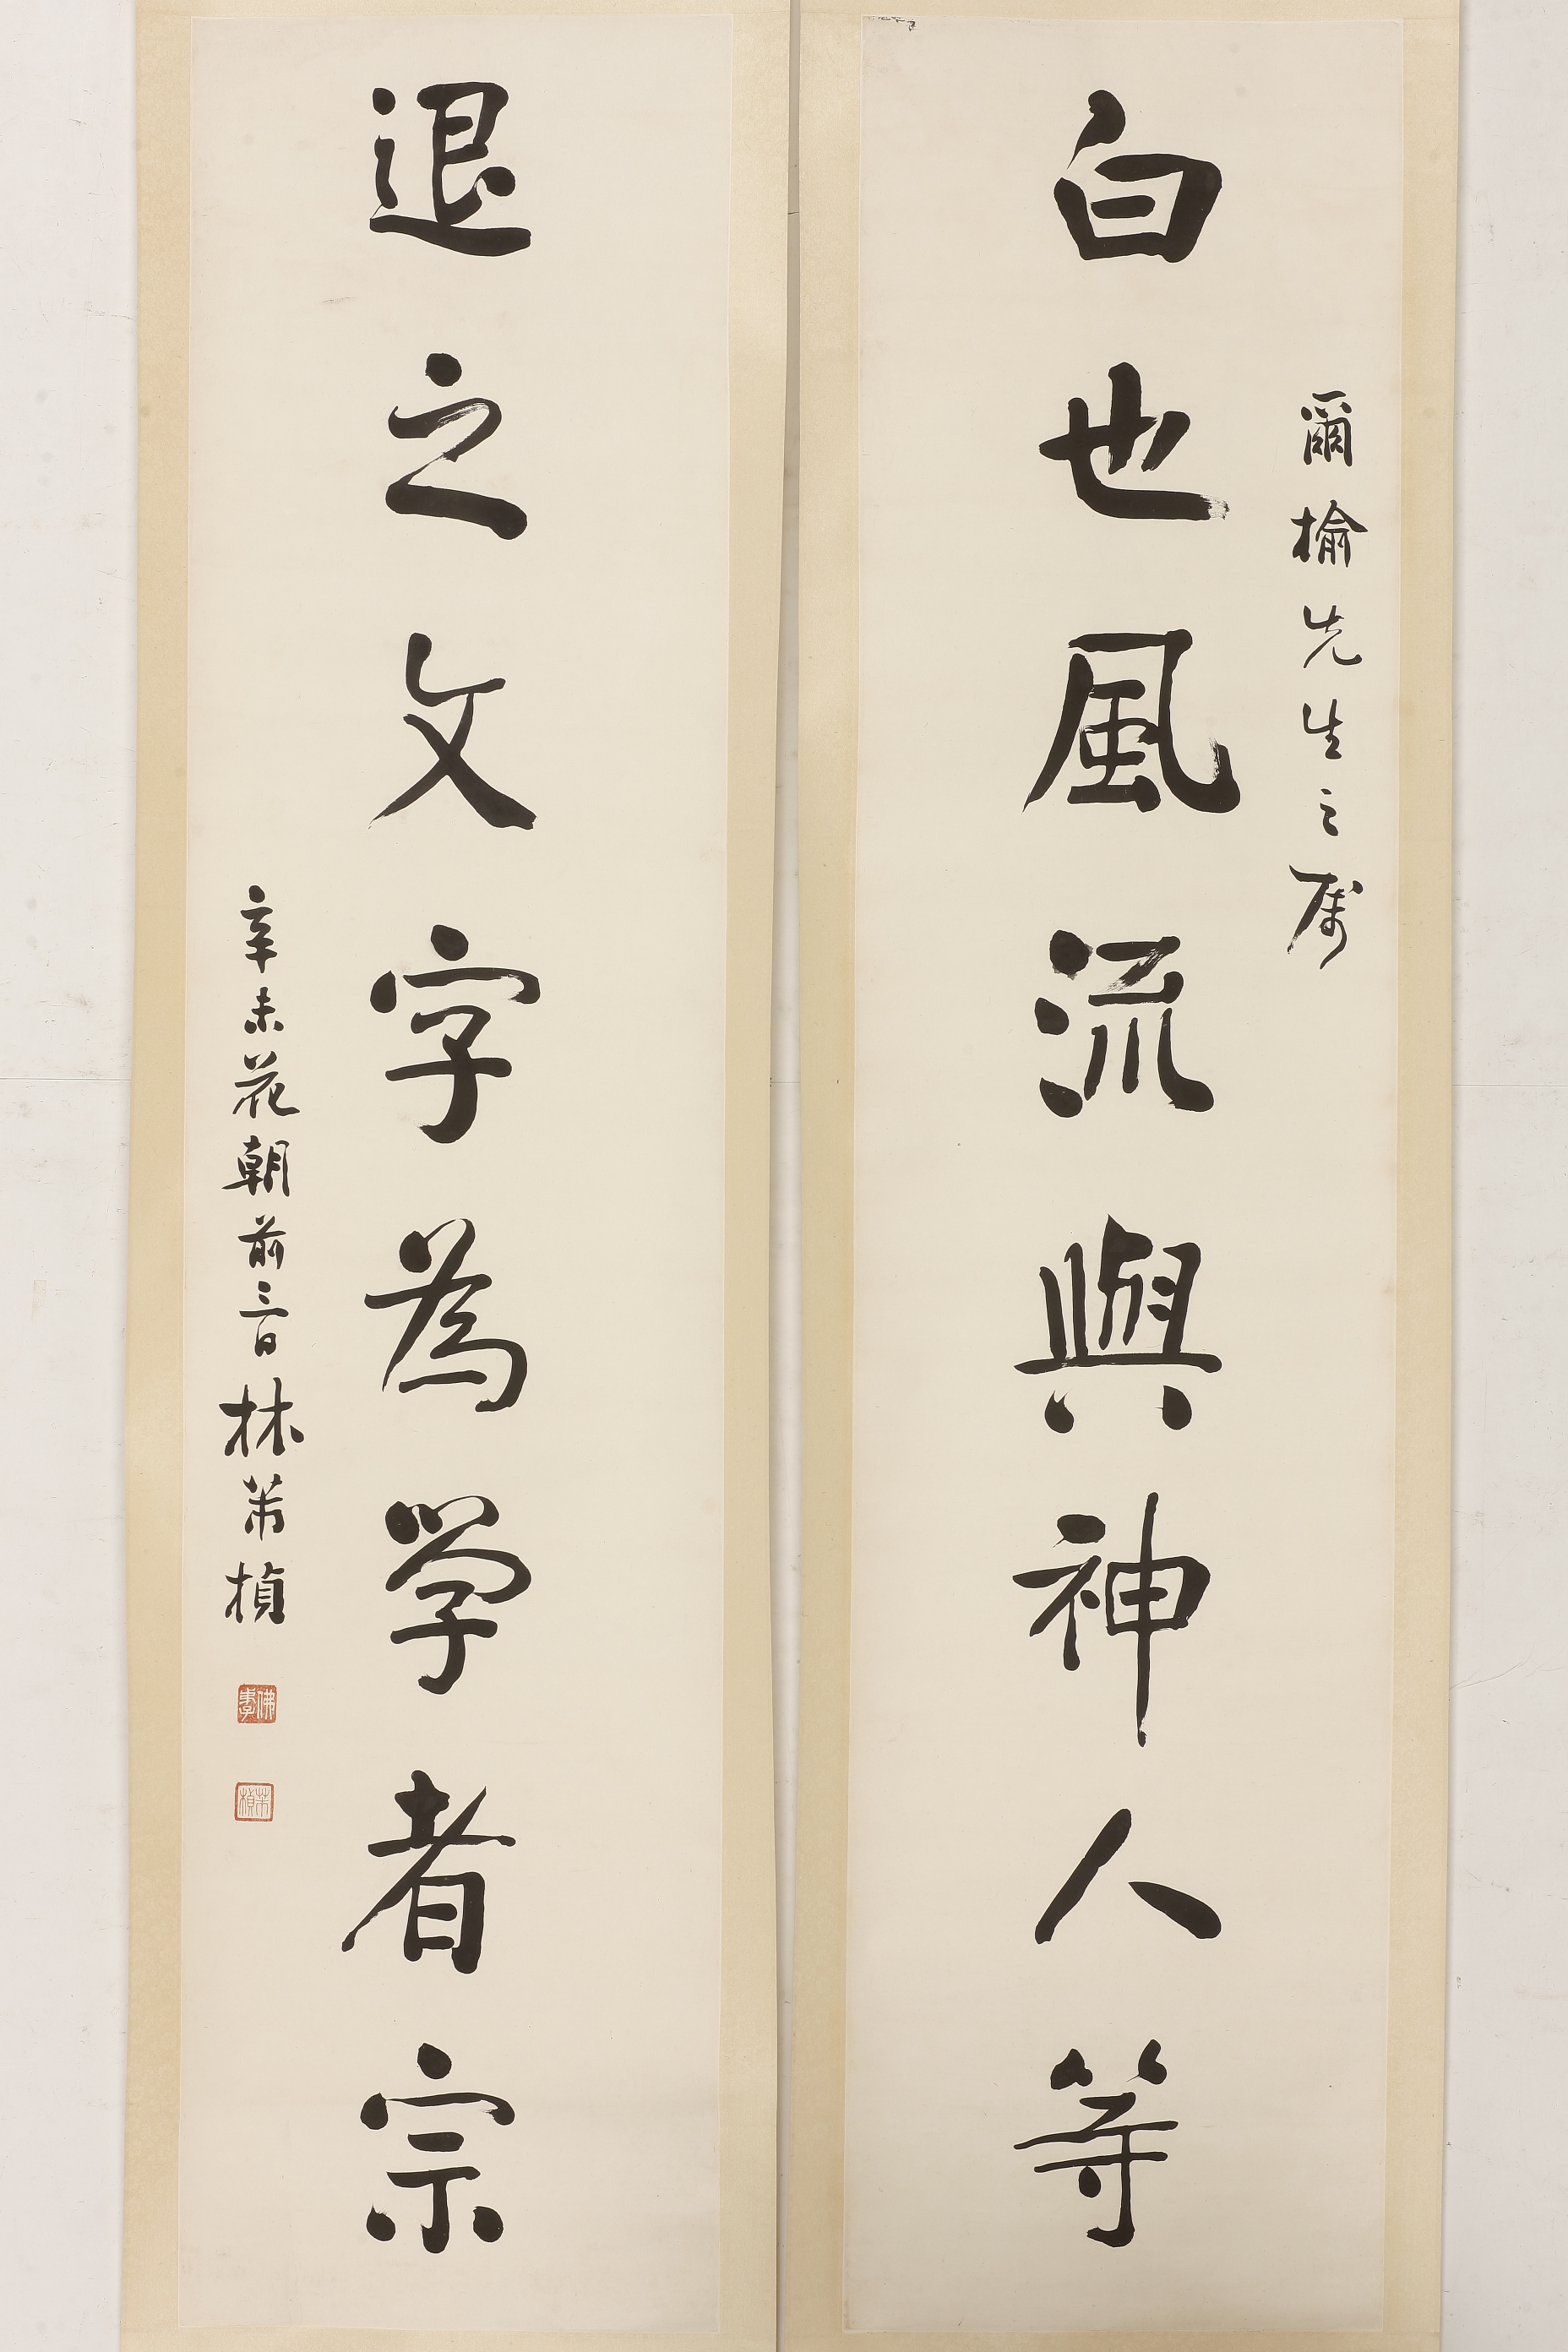 爾榆先生之属
白也風流與神人等
退之文字為学者宗
辛未花朝前三日林棨楨